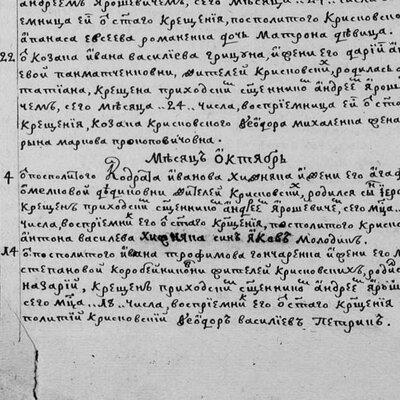 андреемъ Ярошевичемъ, сего мѣсяца ..24.. числа, во
емница ея ѿ с҃таго Крещенія, посполитого Крисновско
апанаса евсеева романенка дочь Матрона дѣвица.
22 ѿ Козака ивана василіева грицуна, и жени его дарїи
евой панматченковни, жителей Крисновскихъ, родилась д
татїана, Крещена приходскимъ священникомъ андреемъ Яро
чемъ, сего мѣсяца ..24.. числа, воспрїемница ея ѿ с҃т
Крещенїя, Козака Крисновского Ѳеодора михаленка жена
рына маркова прокоповичовна.
Мѣсяцъ Октябрь
4 ѿ посполитого Кодрата иванова Хижняка и жени его агаѳ
омелковой жителей Крисновскихъ, родился снъ
Крещенъ приходскимъ священникомъ андреемъ Ярошевичемъ, сего мца
числа, воспрїемникъ его ѿ с҃таго Крещенїя, посполитого Крисно
антона василева Хижняка синъ Яковъ молодикъ.
14 ѿ посполитого ивана трофимова гончаренка и жени его
степановой коробейниковни жителей Крисновскихъ, роди
назарїй, Крещенъ приходскимъ священникомъ андреемъ Ярош
сего мца числа, воспрїемникъ его ѿ с҃таго Крещенїя
политїй Крисновскїй Ѳеодоръ василїевъ Петрикъ.